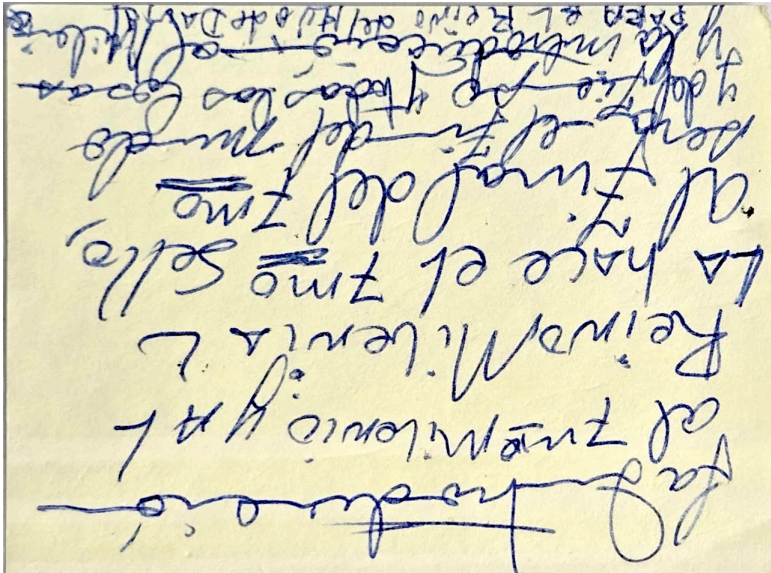 La Introducción
al 7mo Milenio y AL
Reino MileniaL
LA hace el 7mo Sello,
al Final del 7mo
será el Fin del mundo
y del tiempo y todas las cosas
y la introducción al Milenio
y PARA el Reino del Hijo de David